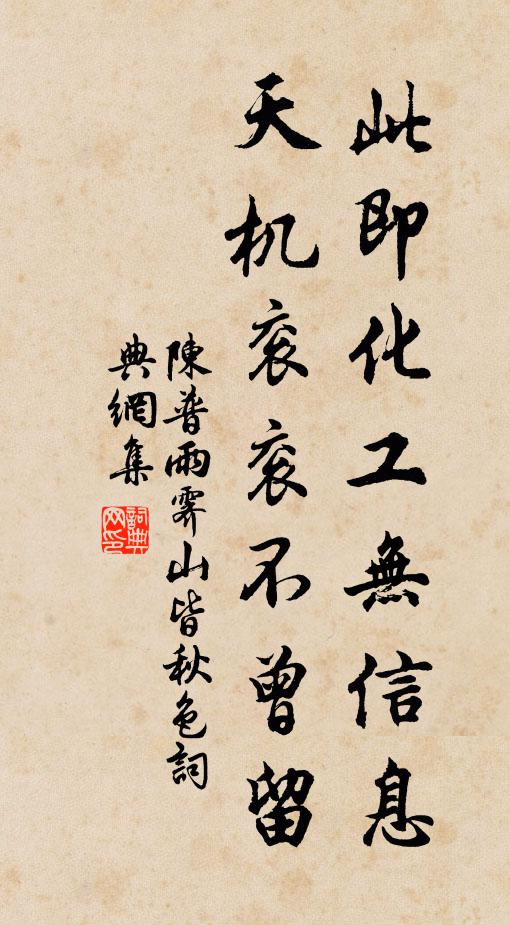 此即化工無信息
天机衮衮不曾留
陳普雨霽山皆秋色詞
典網集
詞典
网印